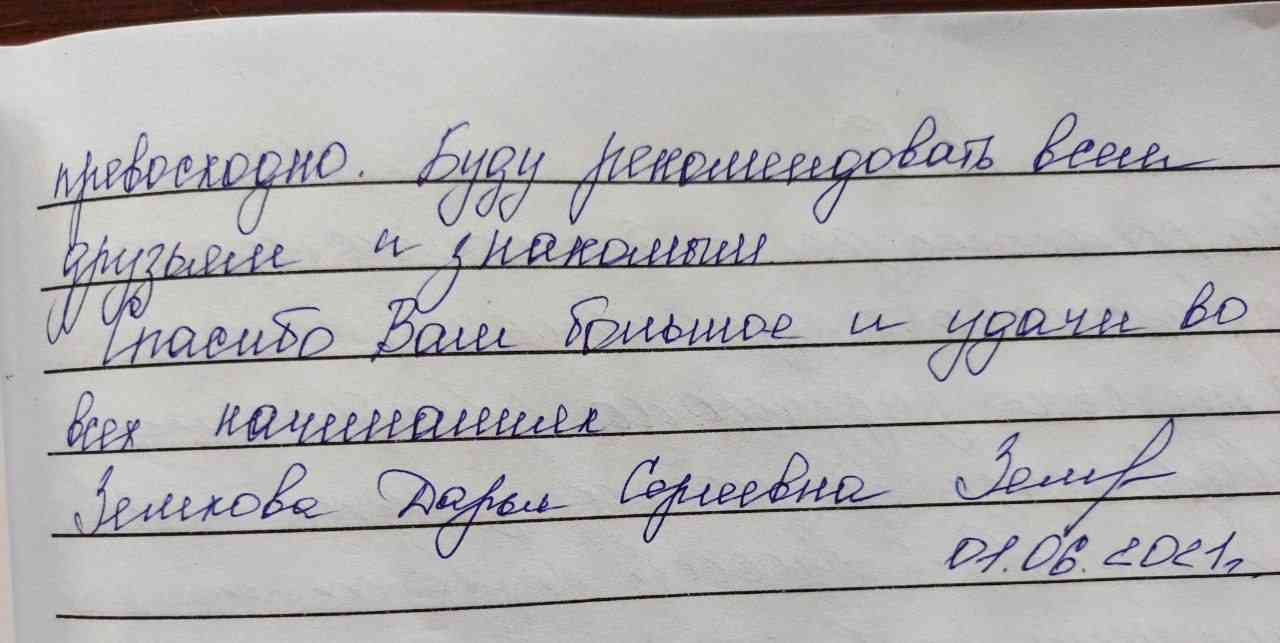 превосходно. Буду рекомендовать всем
друзьям и знакомым
Спасибо Вам большое и удачи во
всех начинаниях
Земкова Дарья Сергеевна Земф
01.06.2021г